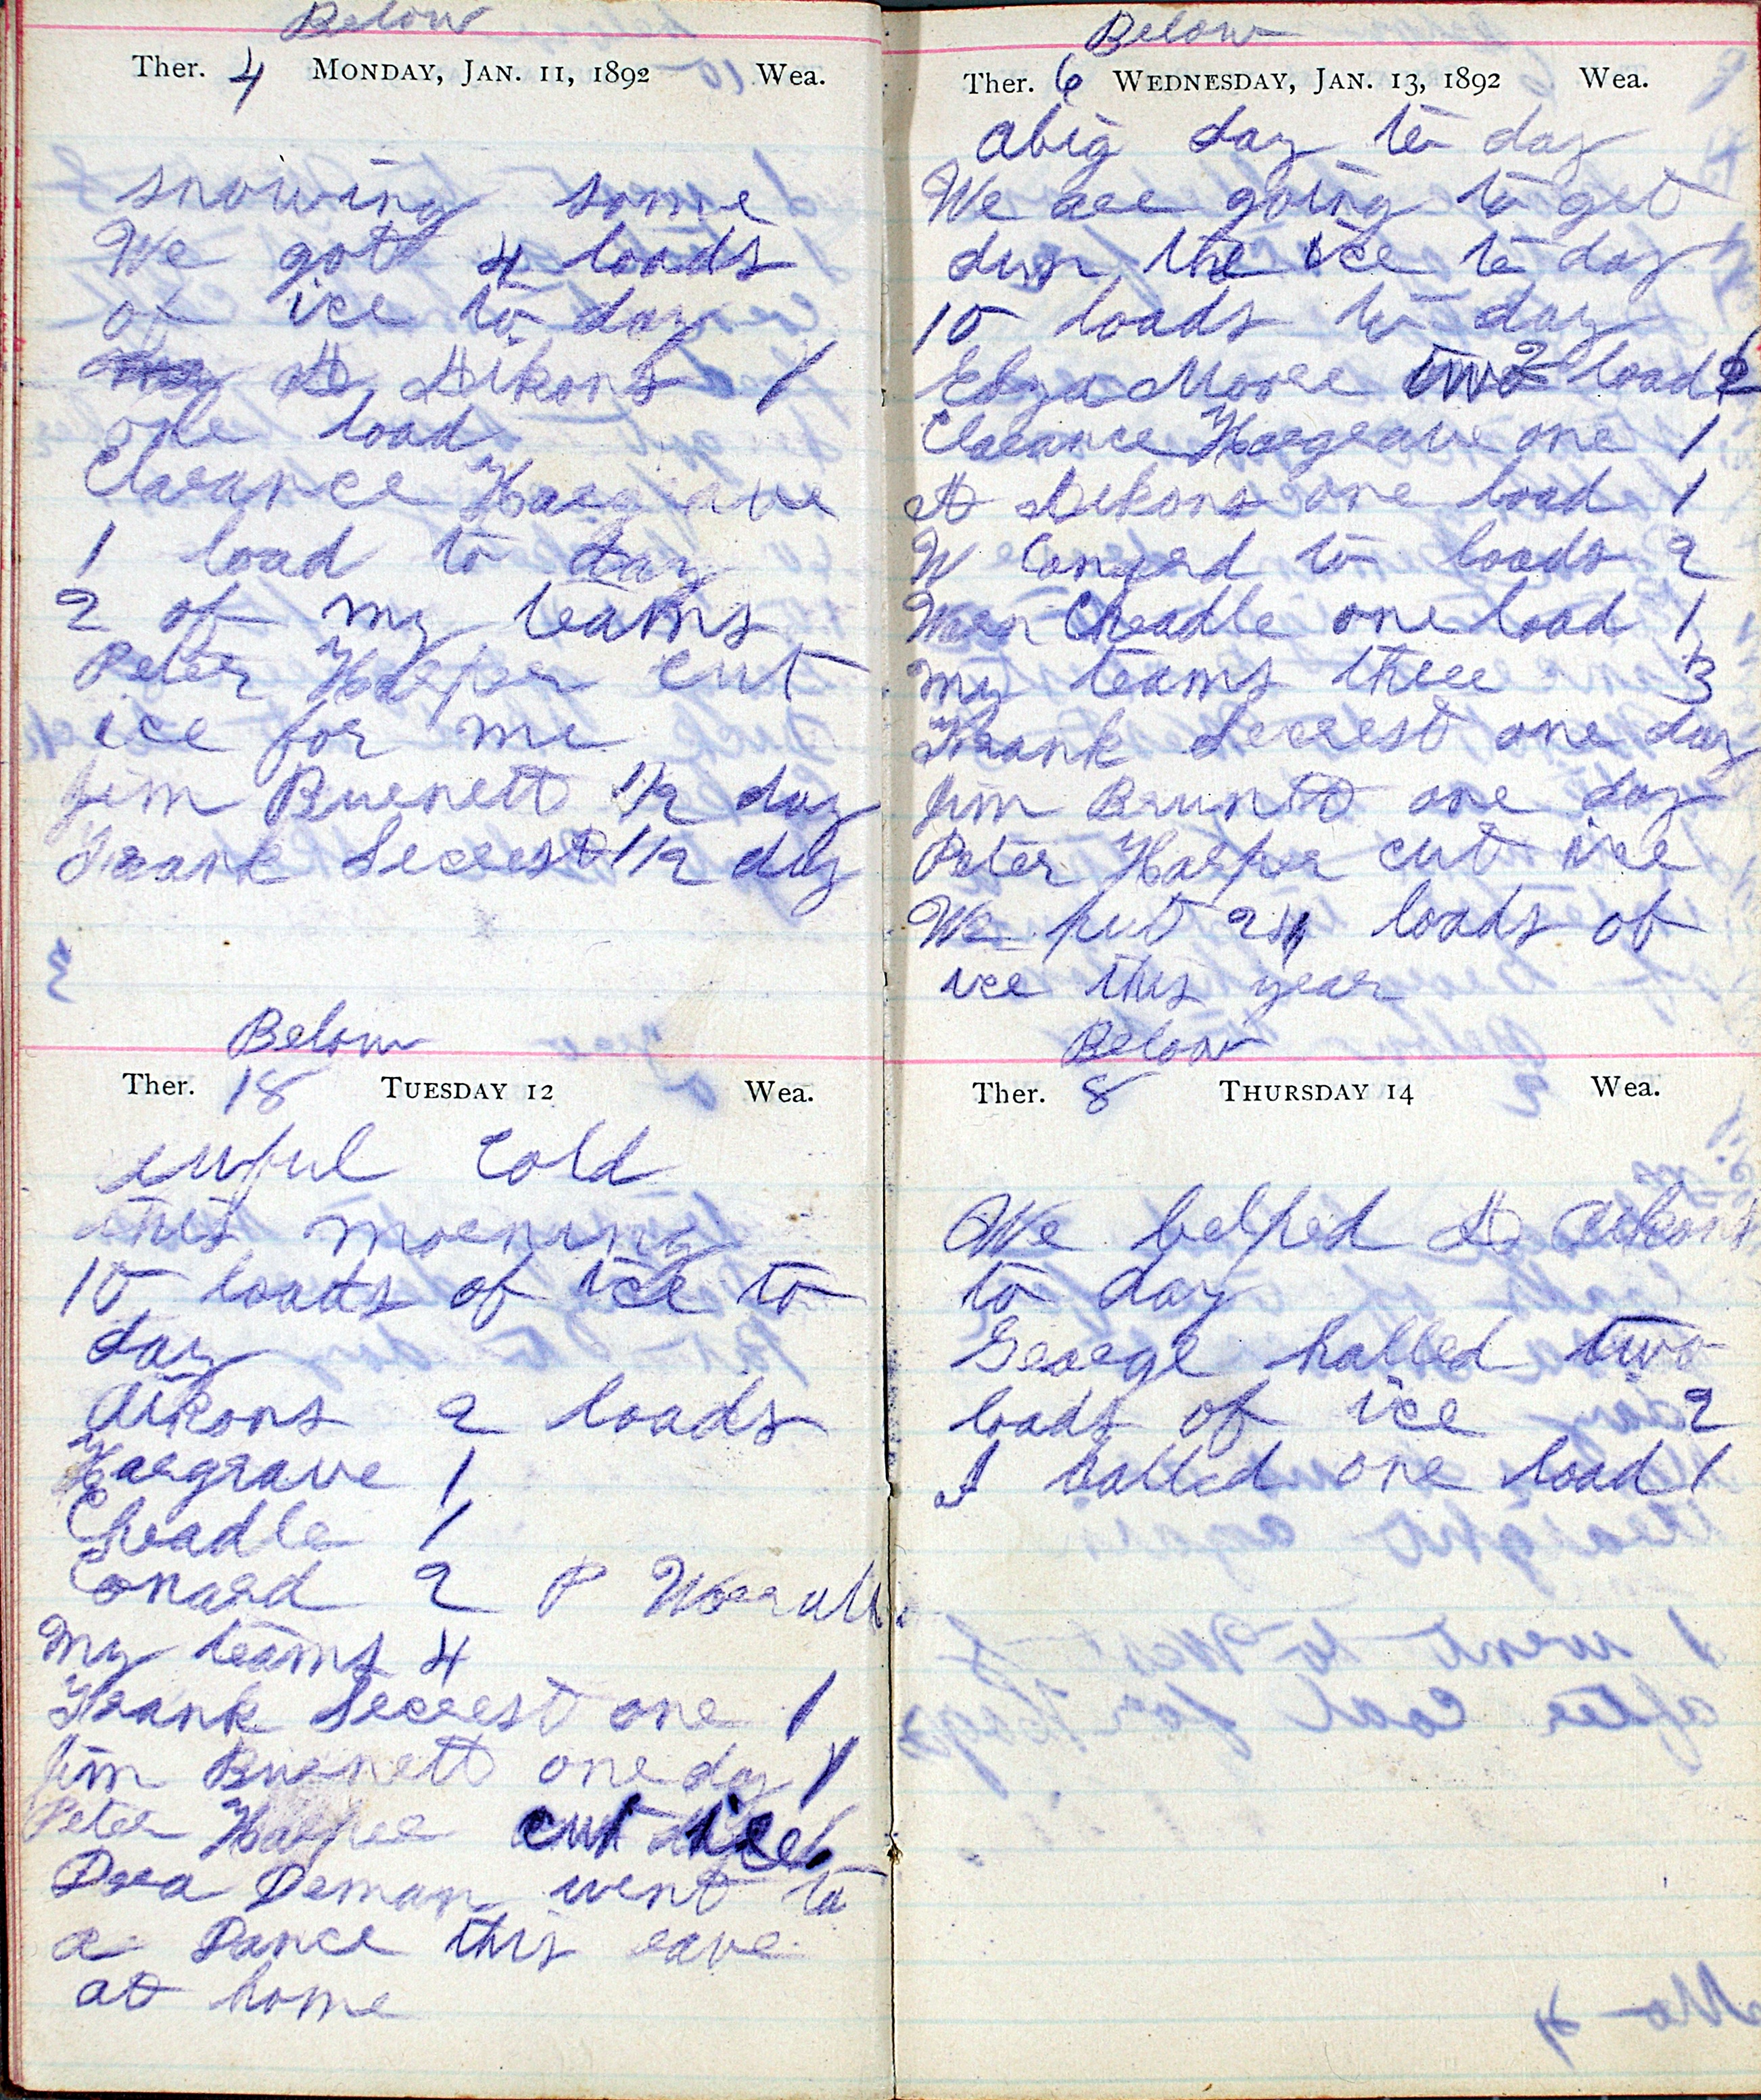 Below
Ther. 4 Monday, Jan. 11, 1892 Wea.
snowing some
We got 4 loads
of ice to day
D Aikons 1
one load
Clarance Hargrave
1 load to day
2 of my teams
Peter Harper cut
ice for me
Jim Burnett 1/2 day
Frank Secrest 1/2 day
Below
Ther. 18 Tuesday 12 Wea.
awful cold
this morning
10 loads of ice to
day
Aikons 2 loads
Hargrave 1
Cheadle 1
Conard 2 P
My teams 4
Frank Secrest one 1
Jim Burnett one day 1
Peter Harper cut ice
Dora Deman went to
a Dance this eave
at home
Below
Ther. 6 Wednesday, Jan. 13, 1892 Wea.
a big day to day
We are going to get
dun the ice to day
10 loads to day
Elza Moore two load 2
Clarance Hargrave one 1
D Aikons one load 1
W Conard to loads 2
Cheadle one load 1
my teams three 3
Frank Secrest one day
Jim Brunt one day
Peter Harper cut ice
We put 24 loads of
ice this year
Below
Ther. 8 Thursday 14 Wea.
We helped D Aikons
to day
George halled two
loads of ice 2
I halled one load 1